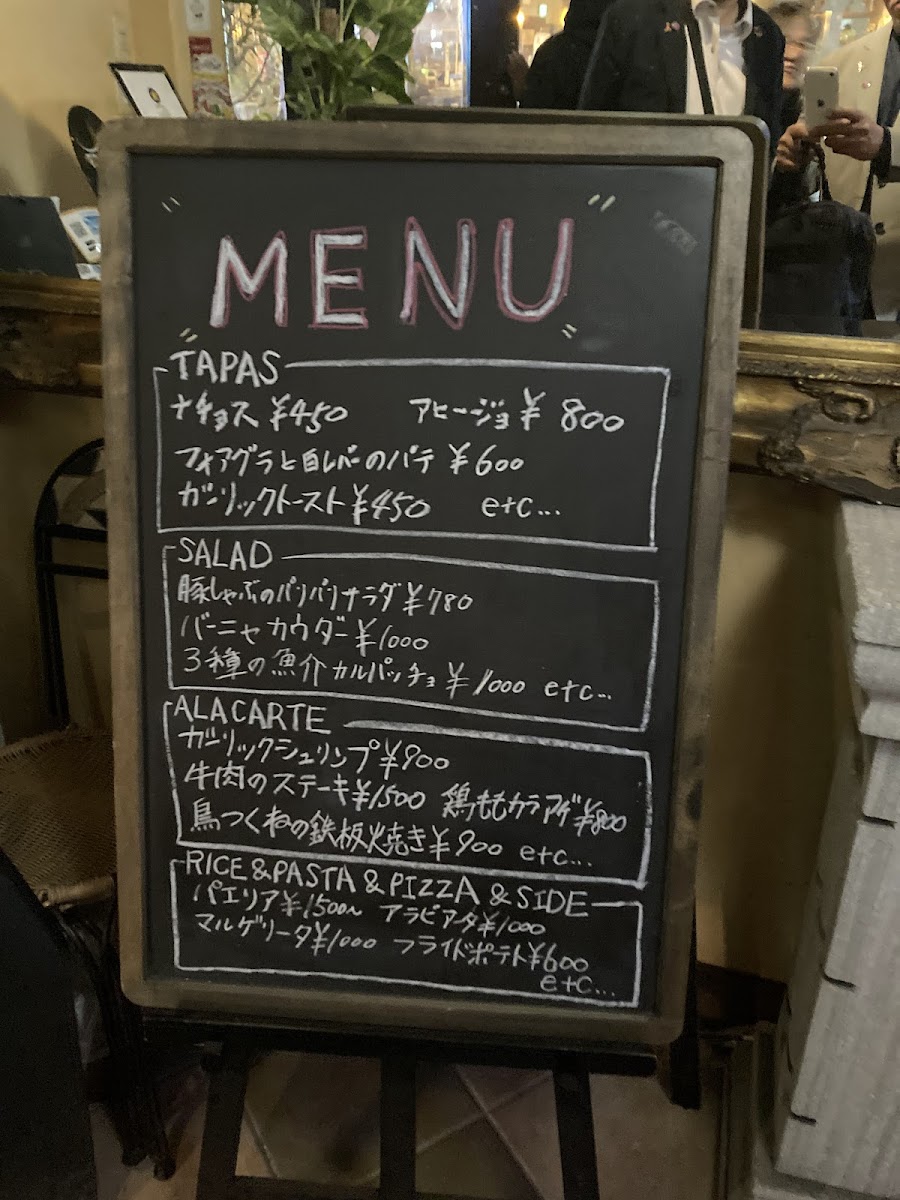 MENU
TAPAS
ナチョス ¥450 アヒージョ ¥ 800
フォアグラと白レバーのパテ ¥600
ガーリックトースト ¥450 etc...
SALAD
豚しゃぶのパリパリサラダ ¥780
バーニャカウダー ¥1000
3種の魚介カルパッチョ ¥1000 etc...
ALACARTE
ガーリックシュリンプ ¥900
牛肉のステーキ ¥1500 鶏ももカラアゲ ¥800
鳥つくねの鉄板焼き ¥900 etc...
RICE&PASTA&PIZZA&SIDE
パエリア ¥1500~ アラビアータ ¥1000
マルゲリータ ¥1000 フライドポテト ¥600
etc...